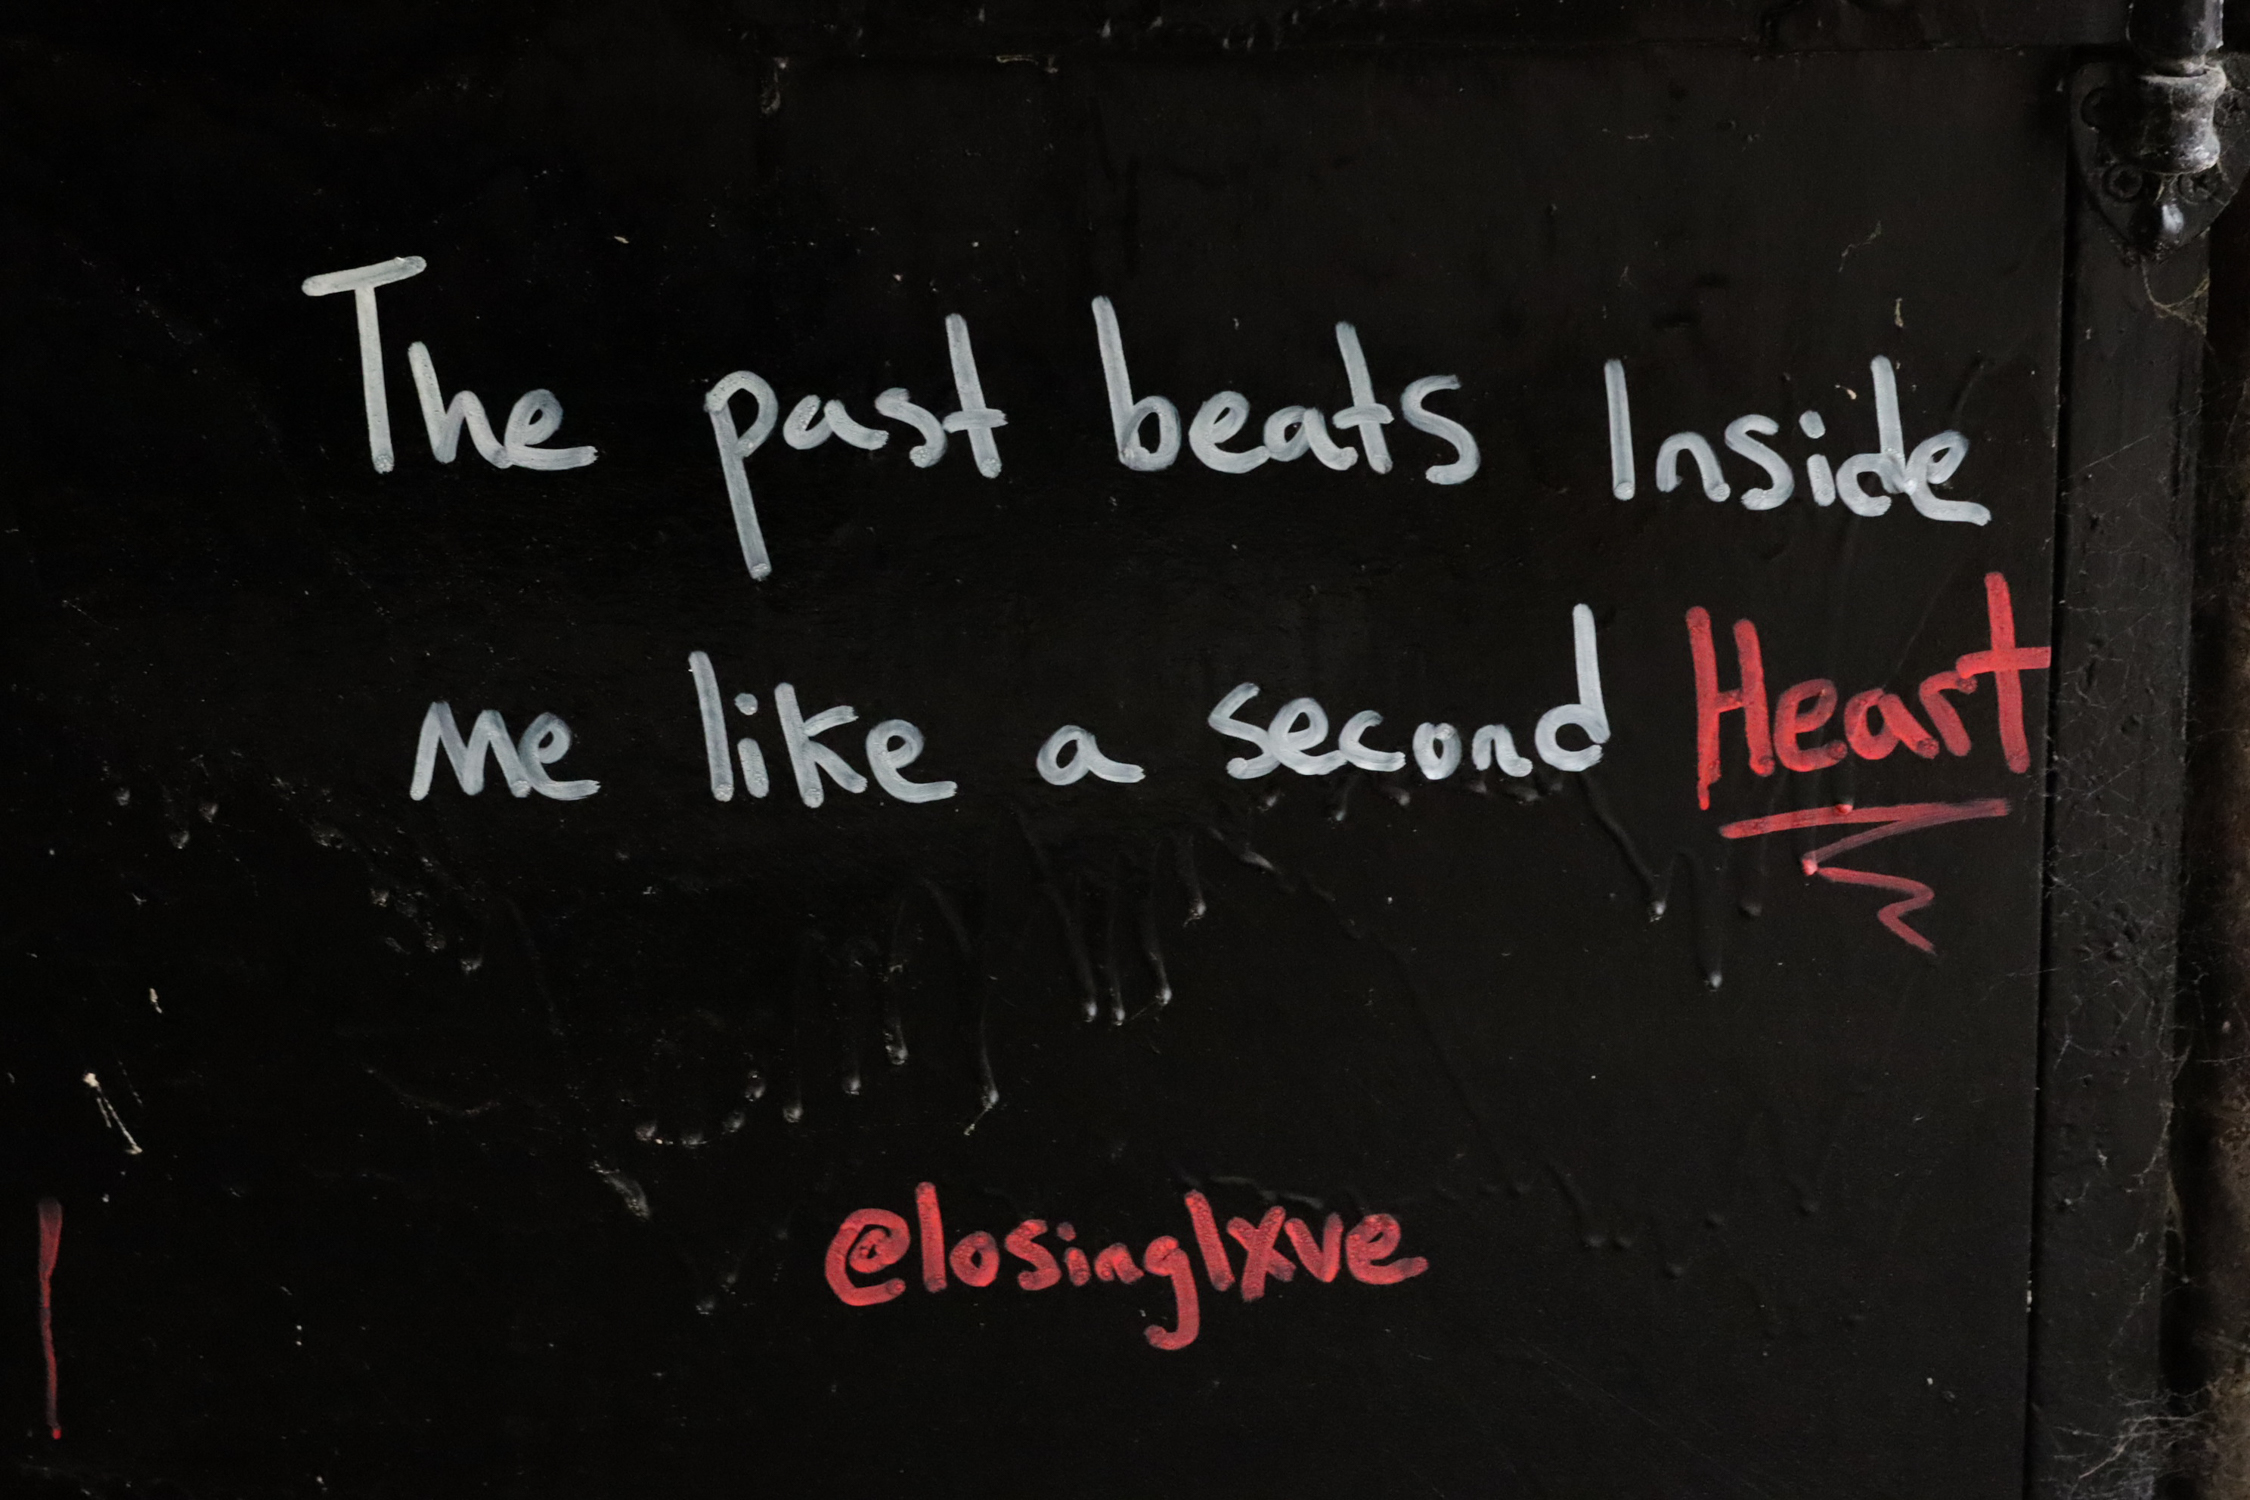 The past beats Inside
me like a second Heart
@losinglxve